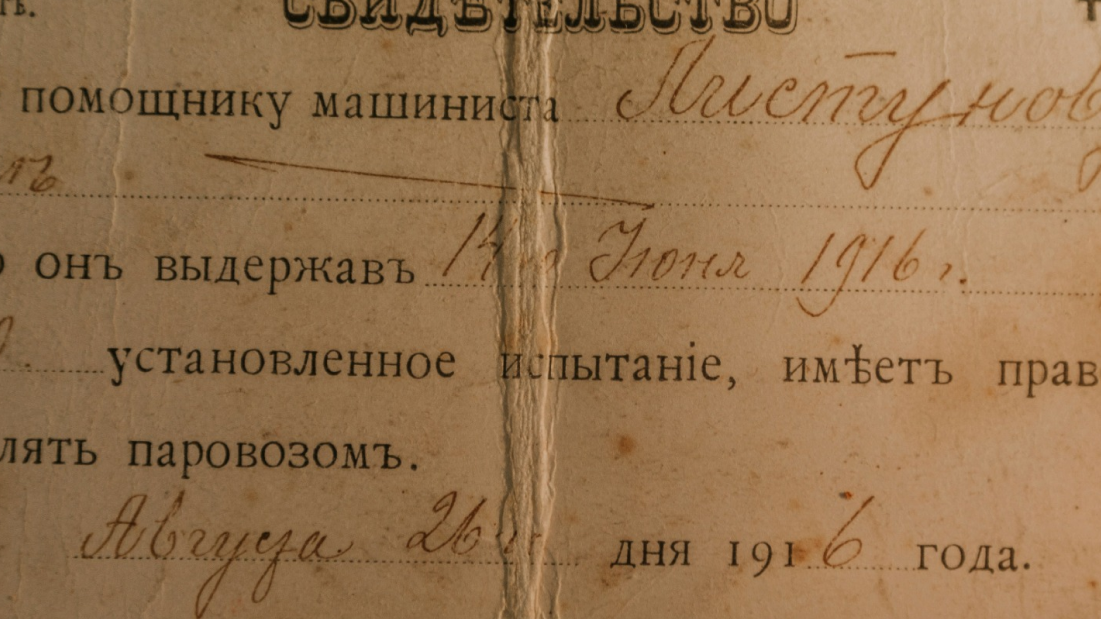 СВИДѢТЕЛЬСТВО
помощнику машиниста Листунов
онъ выдержавъ 14го Іюня 1916 г.
установленное испытаніе, имѣетъ прав
лять паровозомъ.
Августа 26 дня 1916 года.